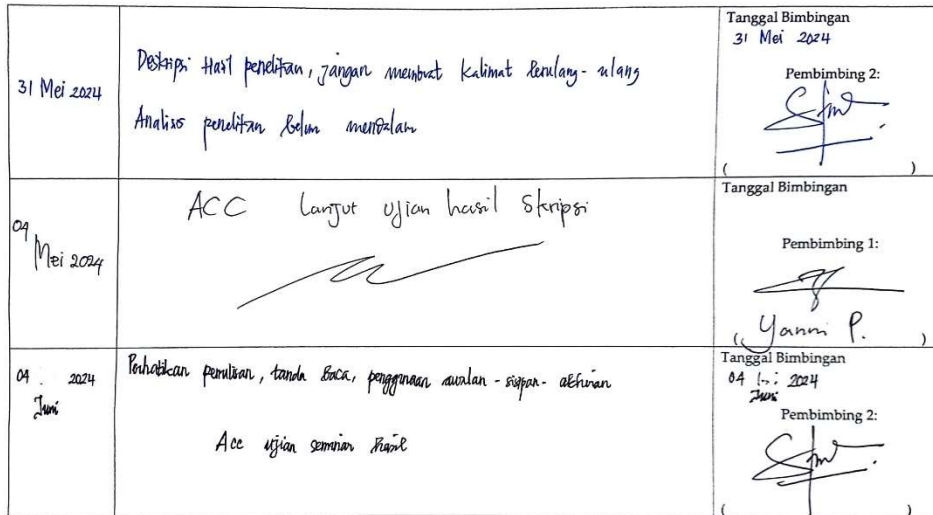 31 Mei 2024
Deskripsi Hasil penelitian, jangan membuat kalimat berulang-ulang
Analisis penelitian belum mendalam
Tanggal Bimbingan
31 Mei 2024
Pembimbing 2:
( )
04 Mei 2024
ACC Lanjut ujian hasil Skripsi
Tanggal Bimbingan
Pembimbing 1:
( Yanni P. )
04 . 2024
Juni
Perhatikan penulisan, tanda baca, penggunaan awalan - sisipan - akhiran
Acc ujian seminar hasil
Tanggal Bimbingan
04 2024
Juni
Pembimbing 2:
( )